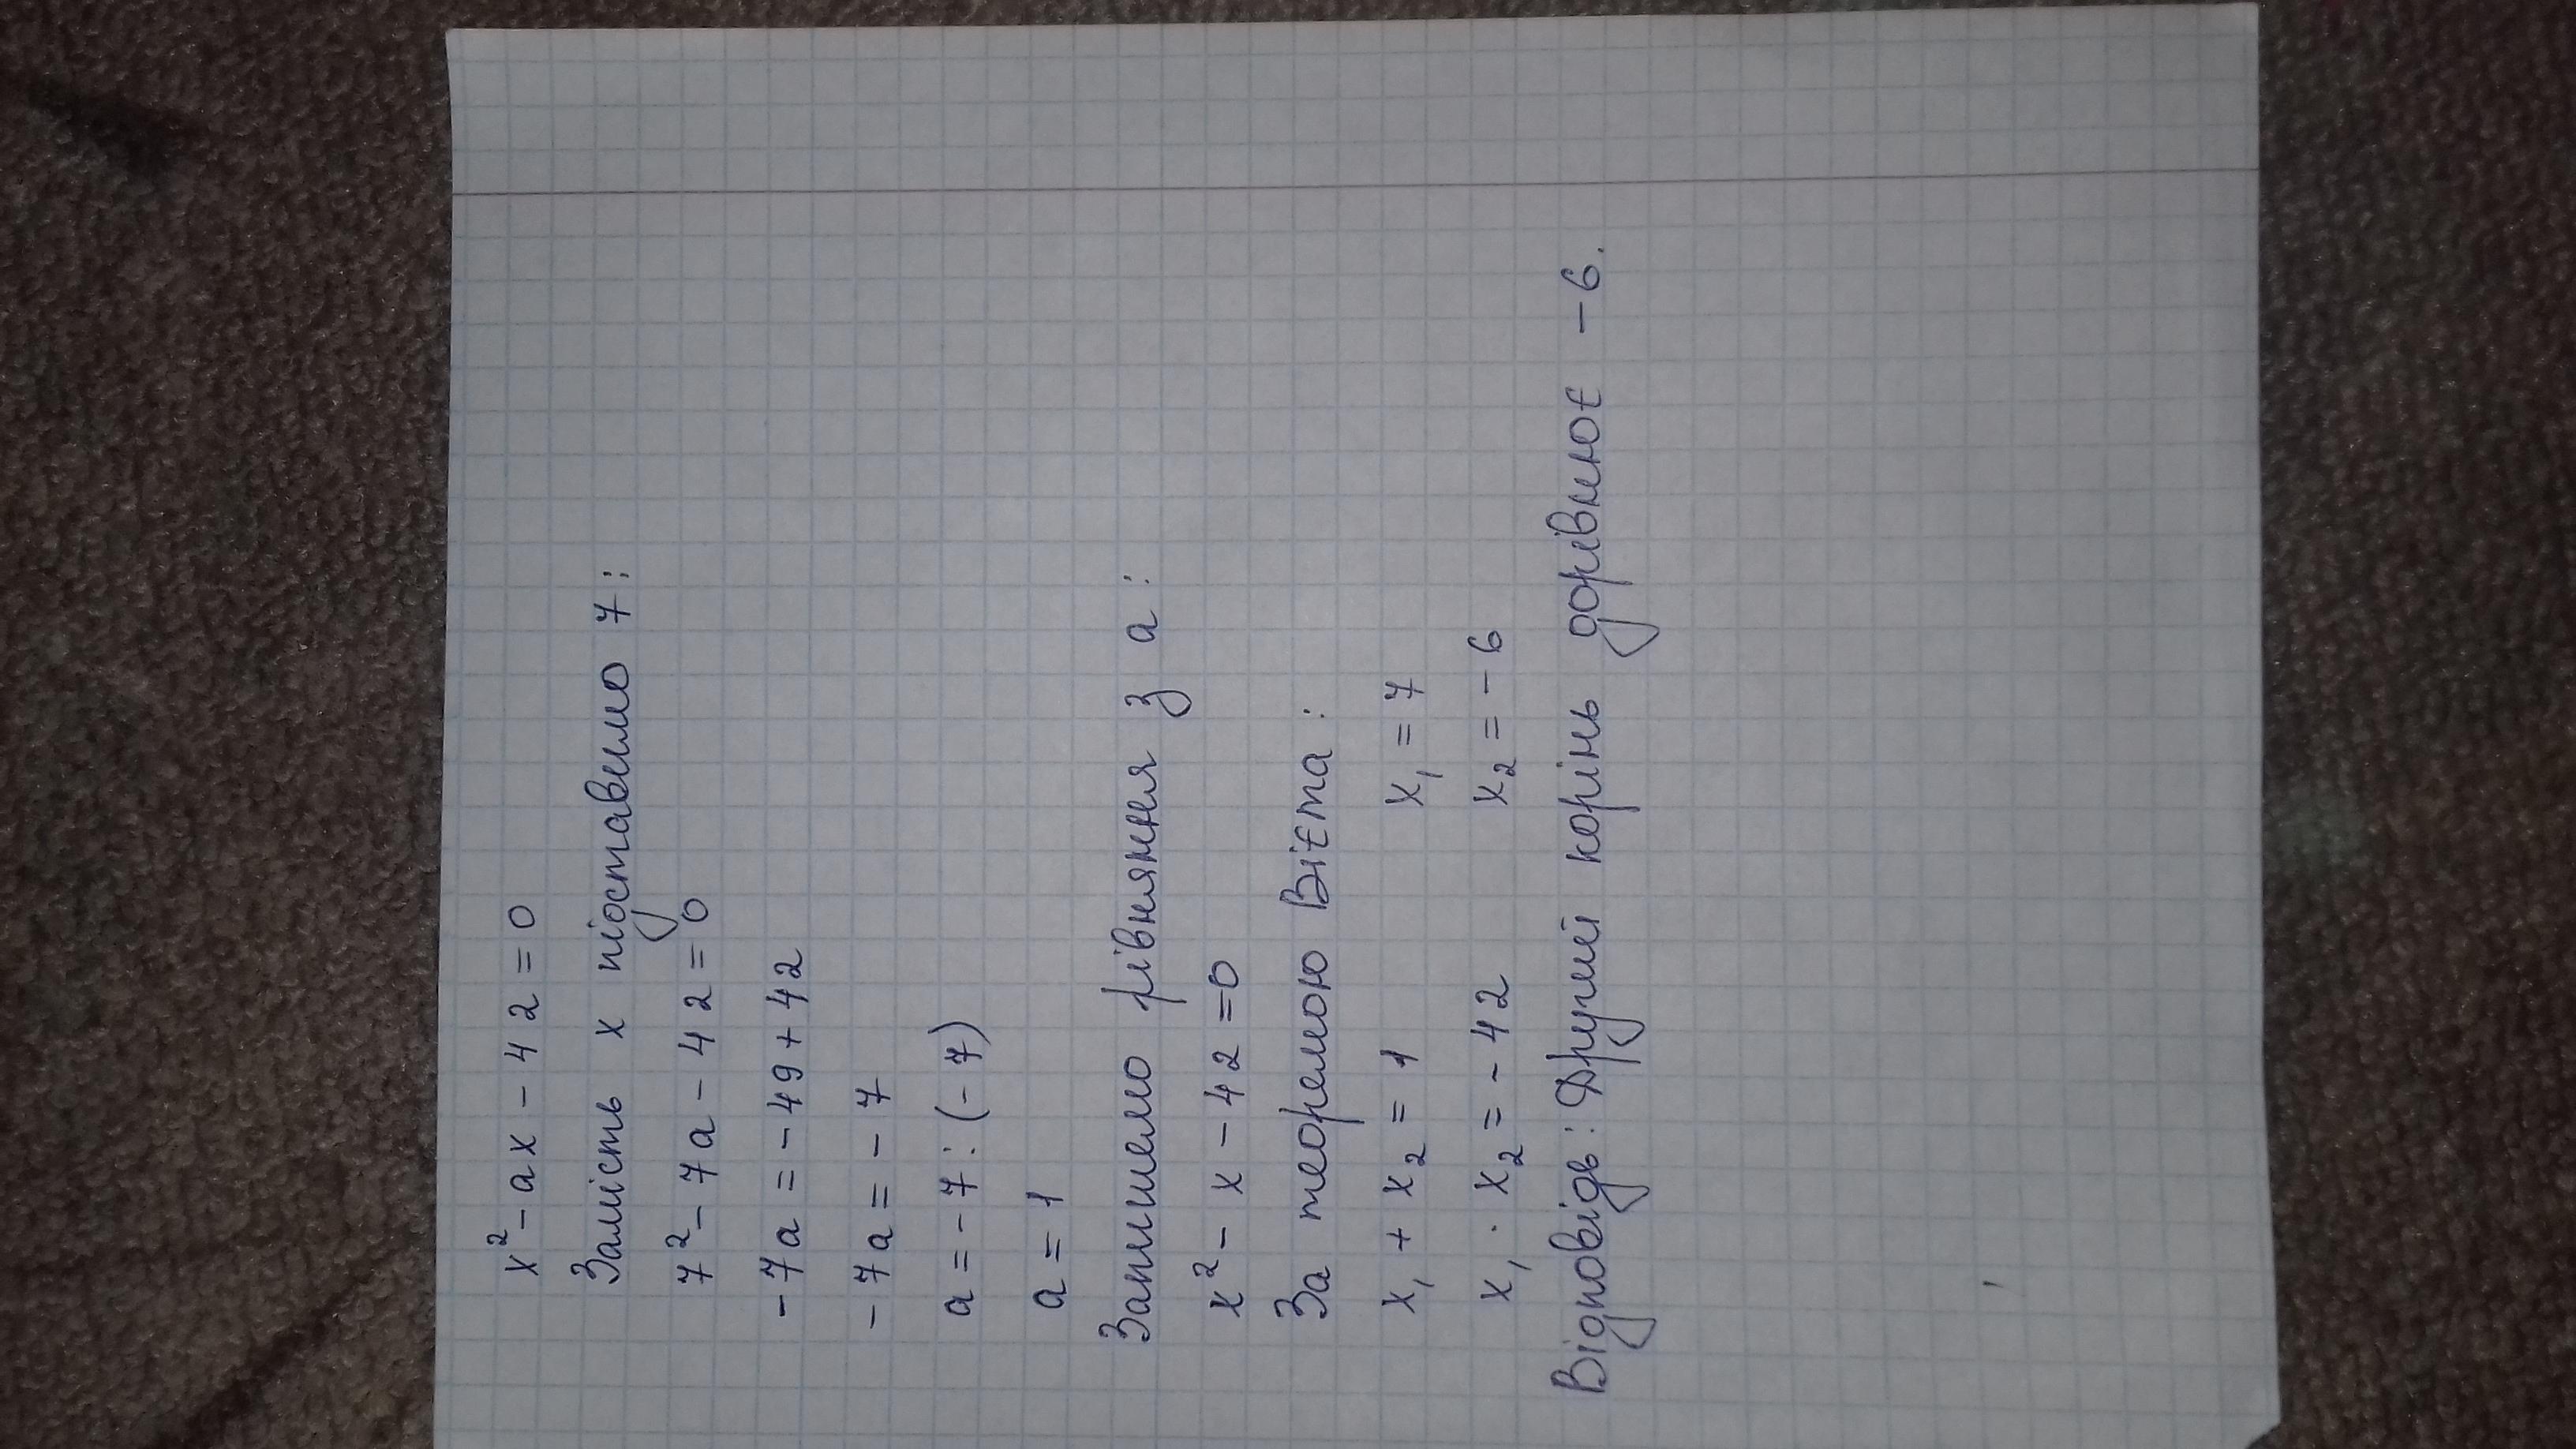 x² - ax - 42 = 0
Замість x підставимо 7:
7² - 7a - 42 = 0
-7a = -49 + 42
-7a = -7
a = -7 : (-7)
a = 1
Запишемо рівняння з a:
x² - x - 42 = 0
За теоремою Вієта:
x₁ + x₂ = 1 x₁ = 7
x₁ · x₂ = -42 x₂ = -6
Відповідь: Другий корінь дорівнює -6.